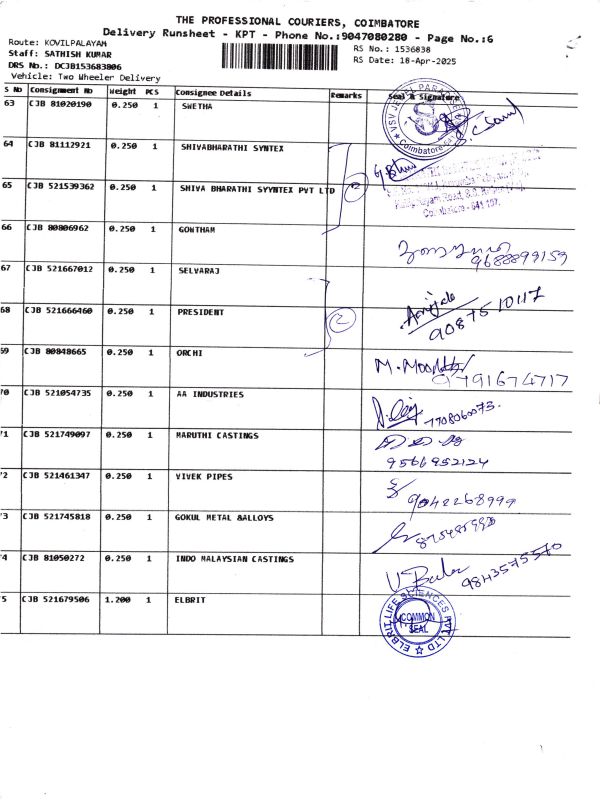 THE PROFESSIONAL COURIERS, COIMBATORE
Delivery Runsheet - KPT - Phone No.:9047080280 - Page No.:6
Route: KOVILPALAYAM
Staff: SATHISH KUMAR
DRS No.: DCJB153683806
Vehicle: Two Wheeler Delivery
RS No.: 1536838
RS Date: 18-Apr-2025
S No Consignment No Weight PCS Consignee Details Remarks Seal & Signature
63 CJB 81020190 0.250 1 SWETHA
64 CJB 81112921 0.250 1 SHIVABHARATHI SYNTEX
65 CJB 521539362 0.250 1 SHIVA BHARATHI SYYNTEX PVT LTD 2
Coimbatore - 641 107.
66 CJB 80806962 0.250 1 GONTHAM
9688899159
67 CJB 521667012 0.250 1 SELVARAJ
68 CJB 521666460 0.250 1 PRESIDENT 2
9087510117
69 CJB 80848665 0.250 1 ORCHI
9791674717
70 CJB 521054735 0.250 1 AA INDUSTRIES
7708060073.
71 CJB 521749097 0.250 1 MARUTHI CASTINGS
9566952124
72 CJB 521461347 0.250 1 VIVEK PIPES
9042268999
73 CJB 521745818 0.250 1 GOKUL METAL &ALLOYS
74 CJB 81050272 0.250 1 INDO MALAYSIAN CASTINGS
9843575570
75 CJB 521679506 1.200 1 ELBRIT
ELBRIT LIFE SCIENCES PVT LTD
COMMON
SEAL